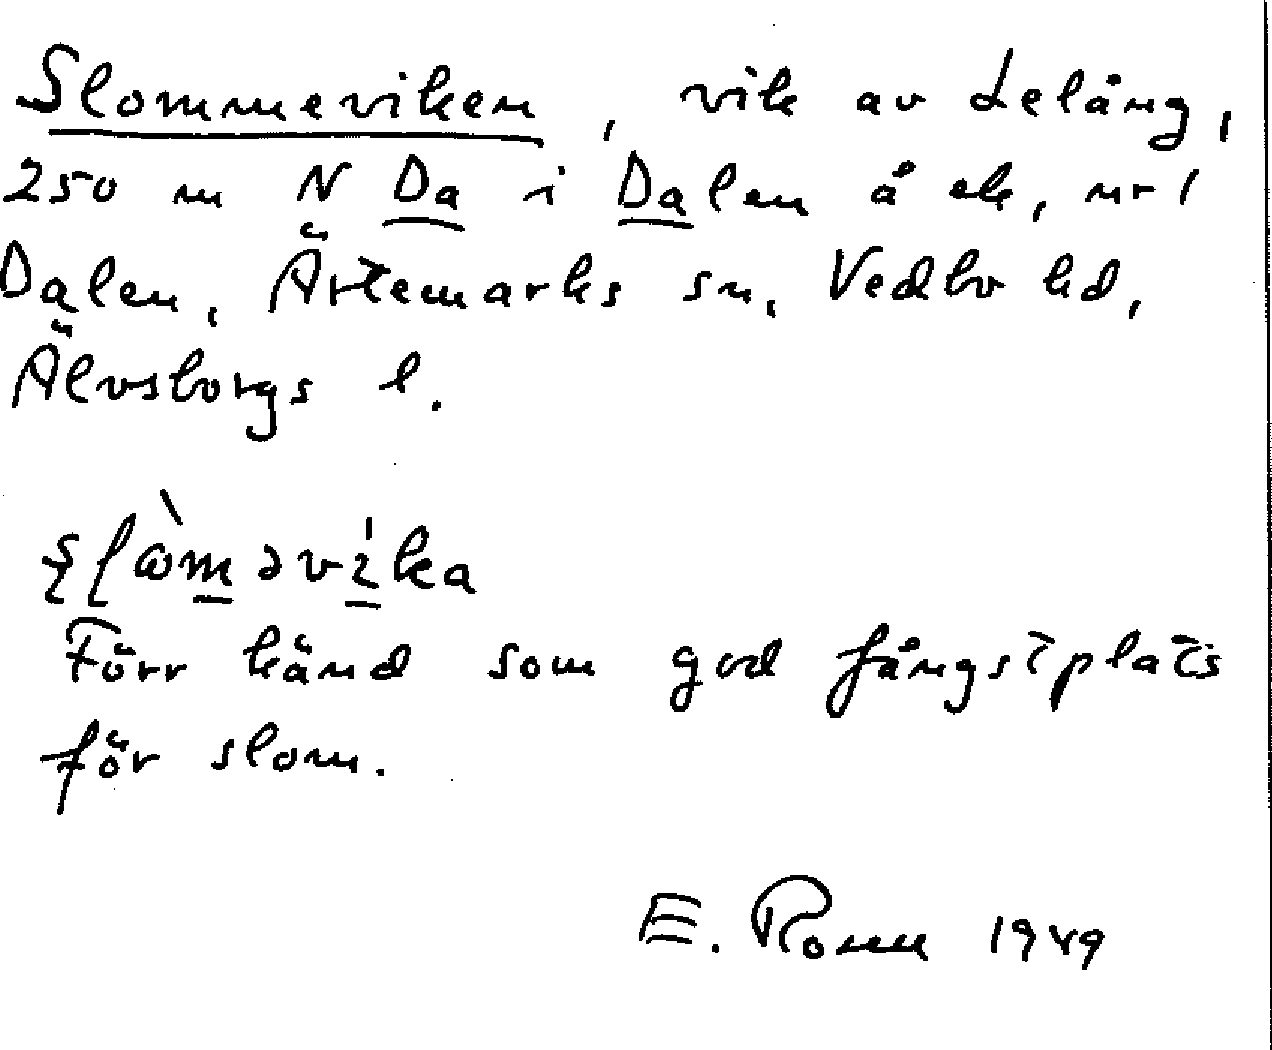 Slommeviken, vik av Lelång,
250 m N Da i Dalen å ek, nr 1
Dalen, Ärtemarks sn, Vedbo hd,
Älvsborgs l.
Förr känd som god fångstplats
för slom.
E. Romm 1949